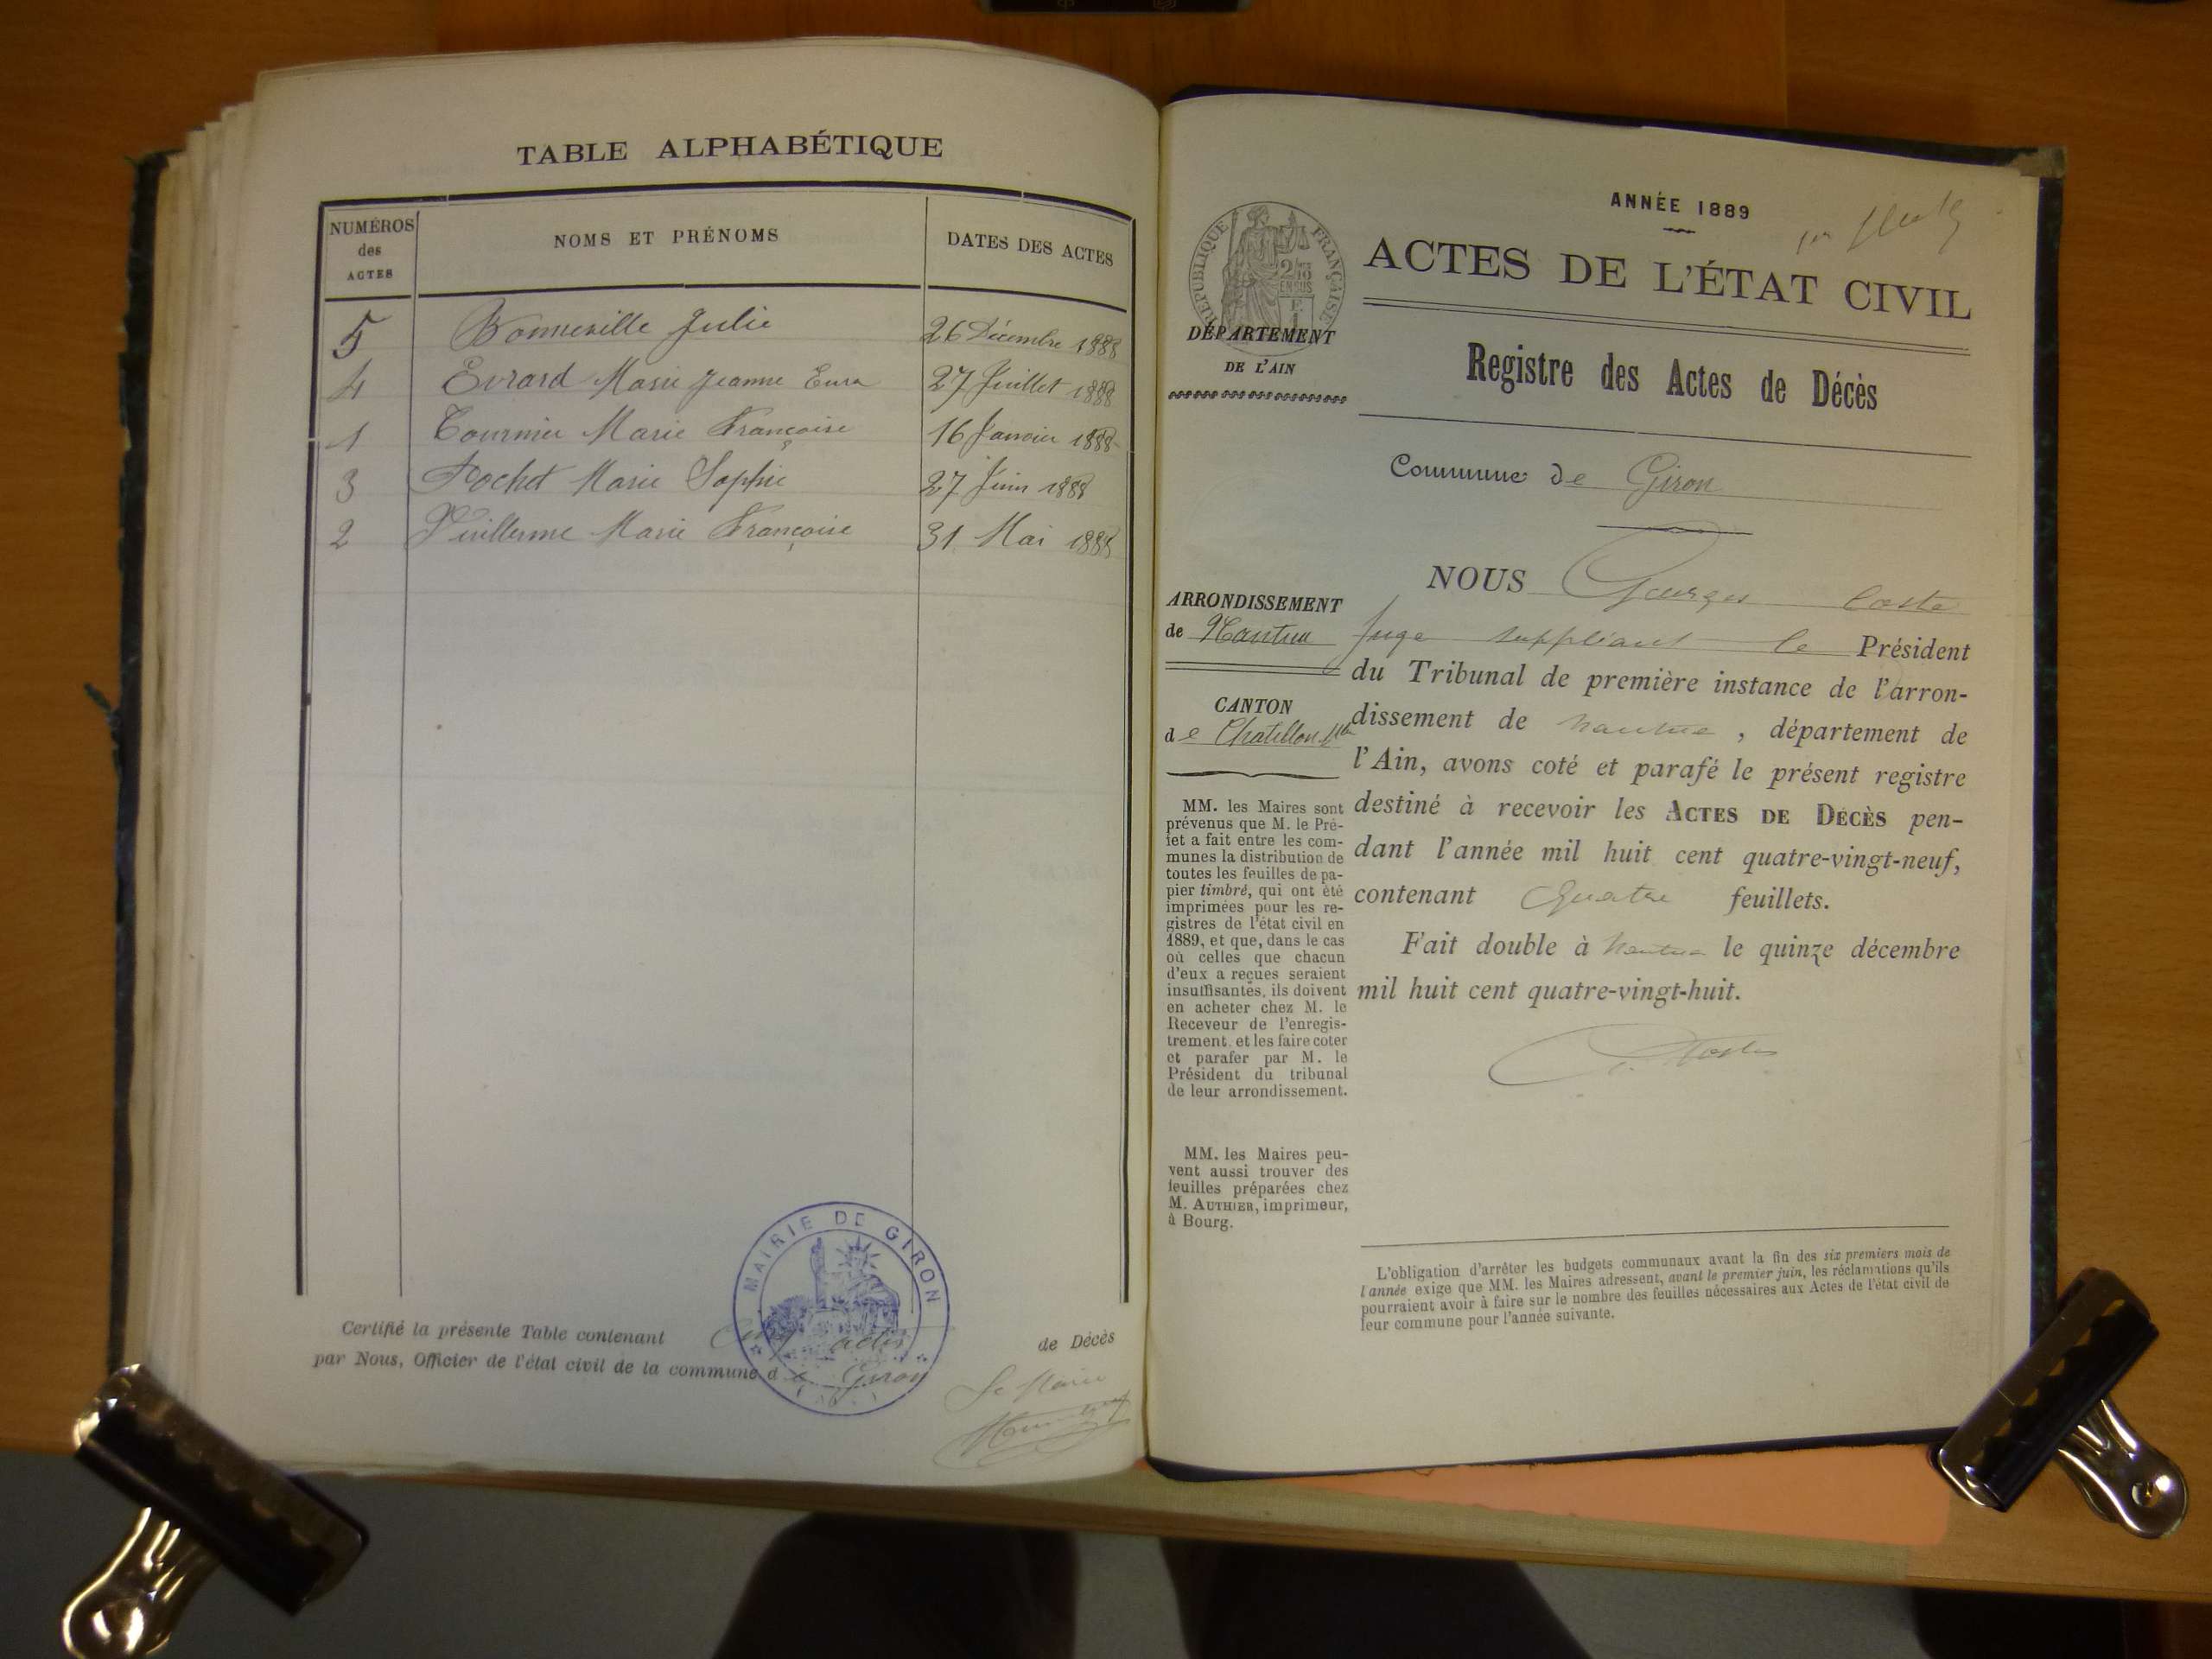 TABLE ALPHABÉTIQUE
NUMÉROS des ACTES
NOMS ET PRÉNOMS
DATES DES ACTES
5 Bonneville Julie 26 Décembre 1888
4 Evrard Marie Jeanne 27 Juillet 1888
1 Tournier Marie Françoise 16 Janvier 1888
3 Rochet Marie Sophie 27 Juin 1888
2 Vuillerme Marie Françoise 31 Mai 1888
MAIRIE DE GIRON
Certifié la présente Table contenant Cinq actes de Décès
par Nous, Officier de l'état civil de la commune de Giron
Le Maire
ANNÉE 1889
ACTES DE L'ÉTAT CIVIL
RÉPUBLIQUE FRANÇAISE
DÉPARTEMENT
DE L'AIN
Registre des Actes de Décès
Commune de Giron
ARRONDISSEMENT
de Nantua
CANTON
de Chatillon
MM. les Maires sont
prévenus que M. le Pré-
fet a fait entre les com-
munes la distribution de
toutes les feuilles de pa-
pier timbré, qui ont été
imprimées pour les re-
gistres de l'état civil en
1889, et que, dans le cas
où celles que chacun
d'eux a reçues seraient
insuffisantes, ils doivent
en acheter chez M. le
Receveur de l'enregis-
trement et les faire coter
et parafer par M. le
Président du tribunal
de leur arrondissement.
MM. les Maires peu-
vent aussi trouver des
feuilles préparées chez
M. AUTHIER, imprimeur,
à Bourg.
NOUS Georges Coste
Juge suppléant le Président
du Tribunal de première instance de l'arron-
dissement de Nantua, département de
l'Ain, avons coté et parafé le présent registre
destiné à recevoir les ACTES DE DÉCÈS pen-
dant l'année mil huit cent quatre-vingt-neuf,
contenant Quatre feuillets.
Fait double à Nantua le quinze décembre
mil huit cent quatre-vingt-huit.
L'obligation d'arrêter les budgets communaux avant la fin des six premiers mois de
l'année exige que MM. les Maires adressent, avant le premier juin, les réclamations qu'ils
pourraient avoir à faire sur le nombre des feuilles nécessaires aux Actes de l'état civil de
leur commune pour l'année suivante.